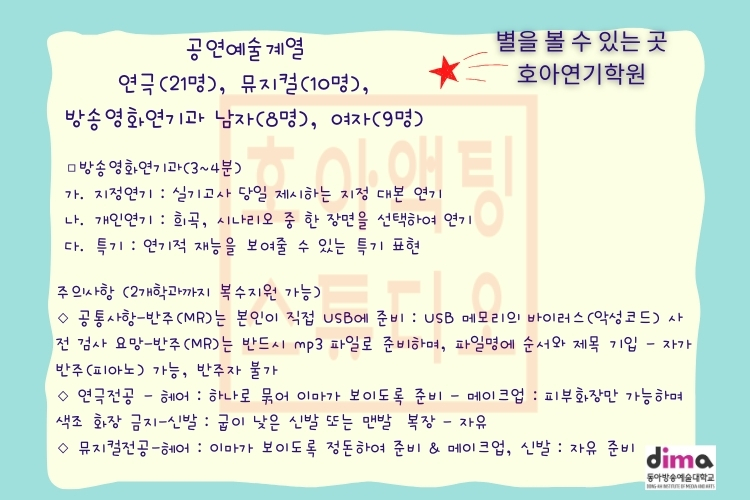 공연예술계열
연극(21명), 뮤지컬(10명),
방송영화연기과 남자(8명), 여자(9명)
별을 볼 수 있는 곳
호아연기학원
호아액팅
스튜디오
□방송영화연기과(3~4분)
가. 지정연기 : 실기고사 당일 제시하는 지정 대본 연기
나. 개인연기 : 희곡, 시나리오 중 한 장면을 선택하여 연기
다. 특기 : 연기적 재능을 보여줄 수 있는 특기 표현
주의사항 (2개학과까지 복수지원 가능)
◇ 공통사항-반주(MR)는 본인이 직접 USB에 준비 : USB 메모리의 바이러스(악성코드) 사
전 검사 요망-반주(MR)는 반드시 mp3 파일로 준비하며, 파일명에 순서와 제목 기입 - 자가
반주(피아노) 가능, 반주자 불가
◇ 연극전공 - 헤어 : 하나로 묶어 이마가 보이도록 준비 - 메이크업 : 피부화장만 가능하며
색조 화장 금지-신발 : 굽이 낮은 신발 또는 맨발 복장 - 자유
◇ 뮤지컬전공-헤어 : 이마가 보이도록 정돈하여 준비 & 메이크업, 신발 : 자유 준비
dima
동아방송예술대학교
DONG-AH INSTITUTE OF MEDIA AND ARTS